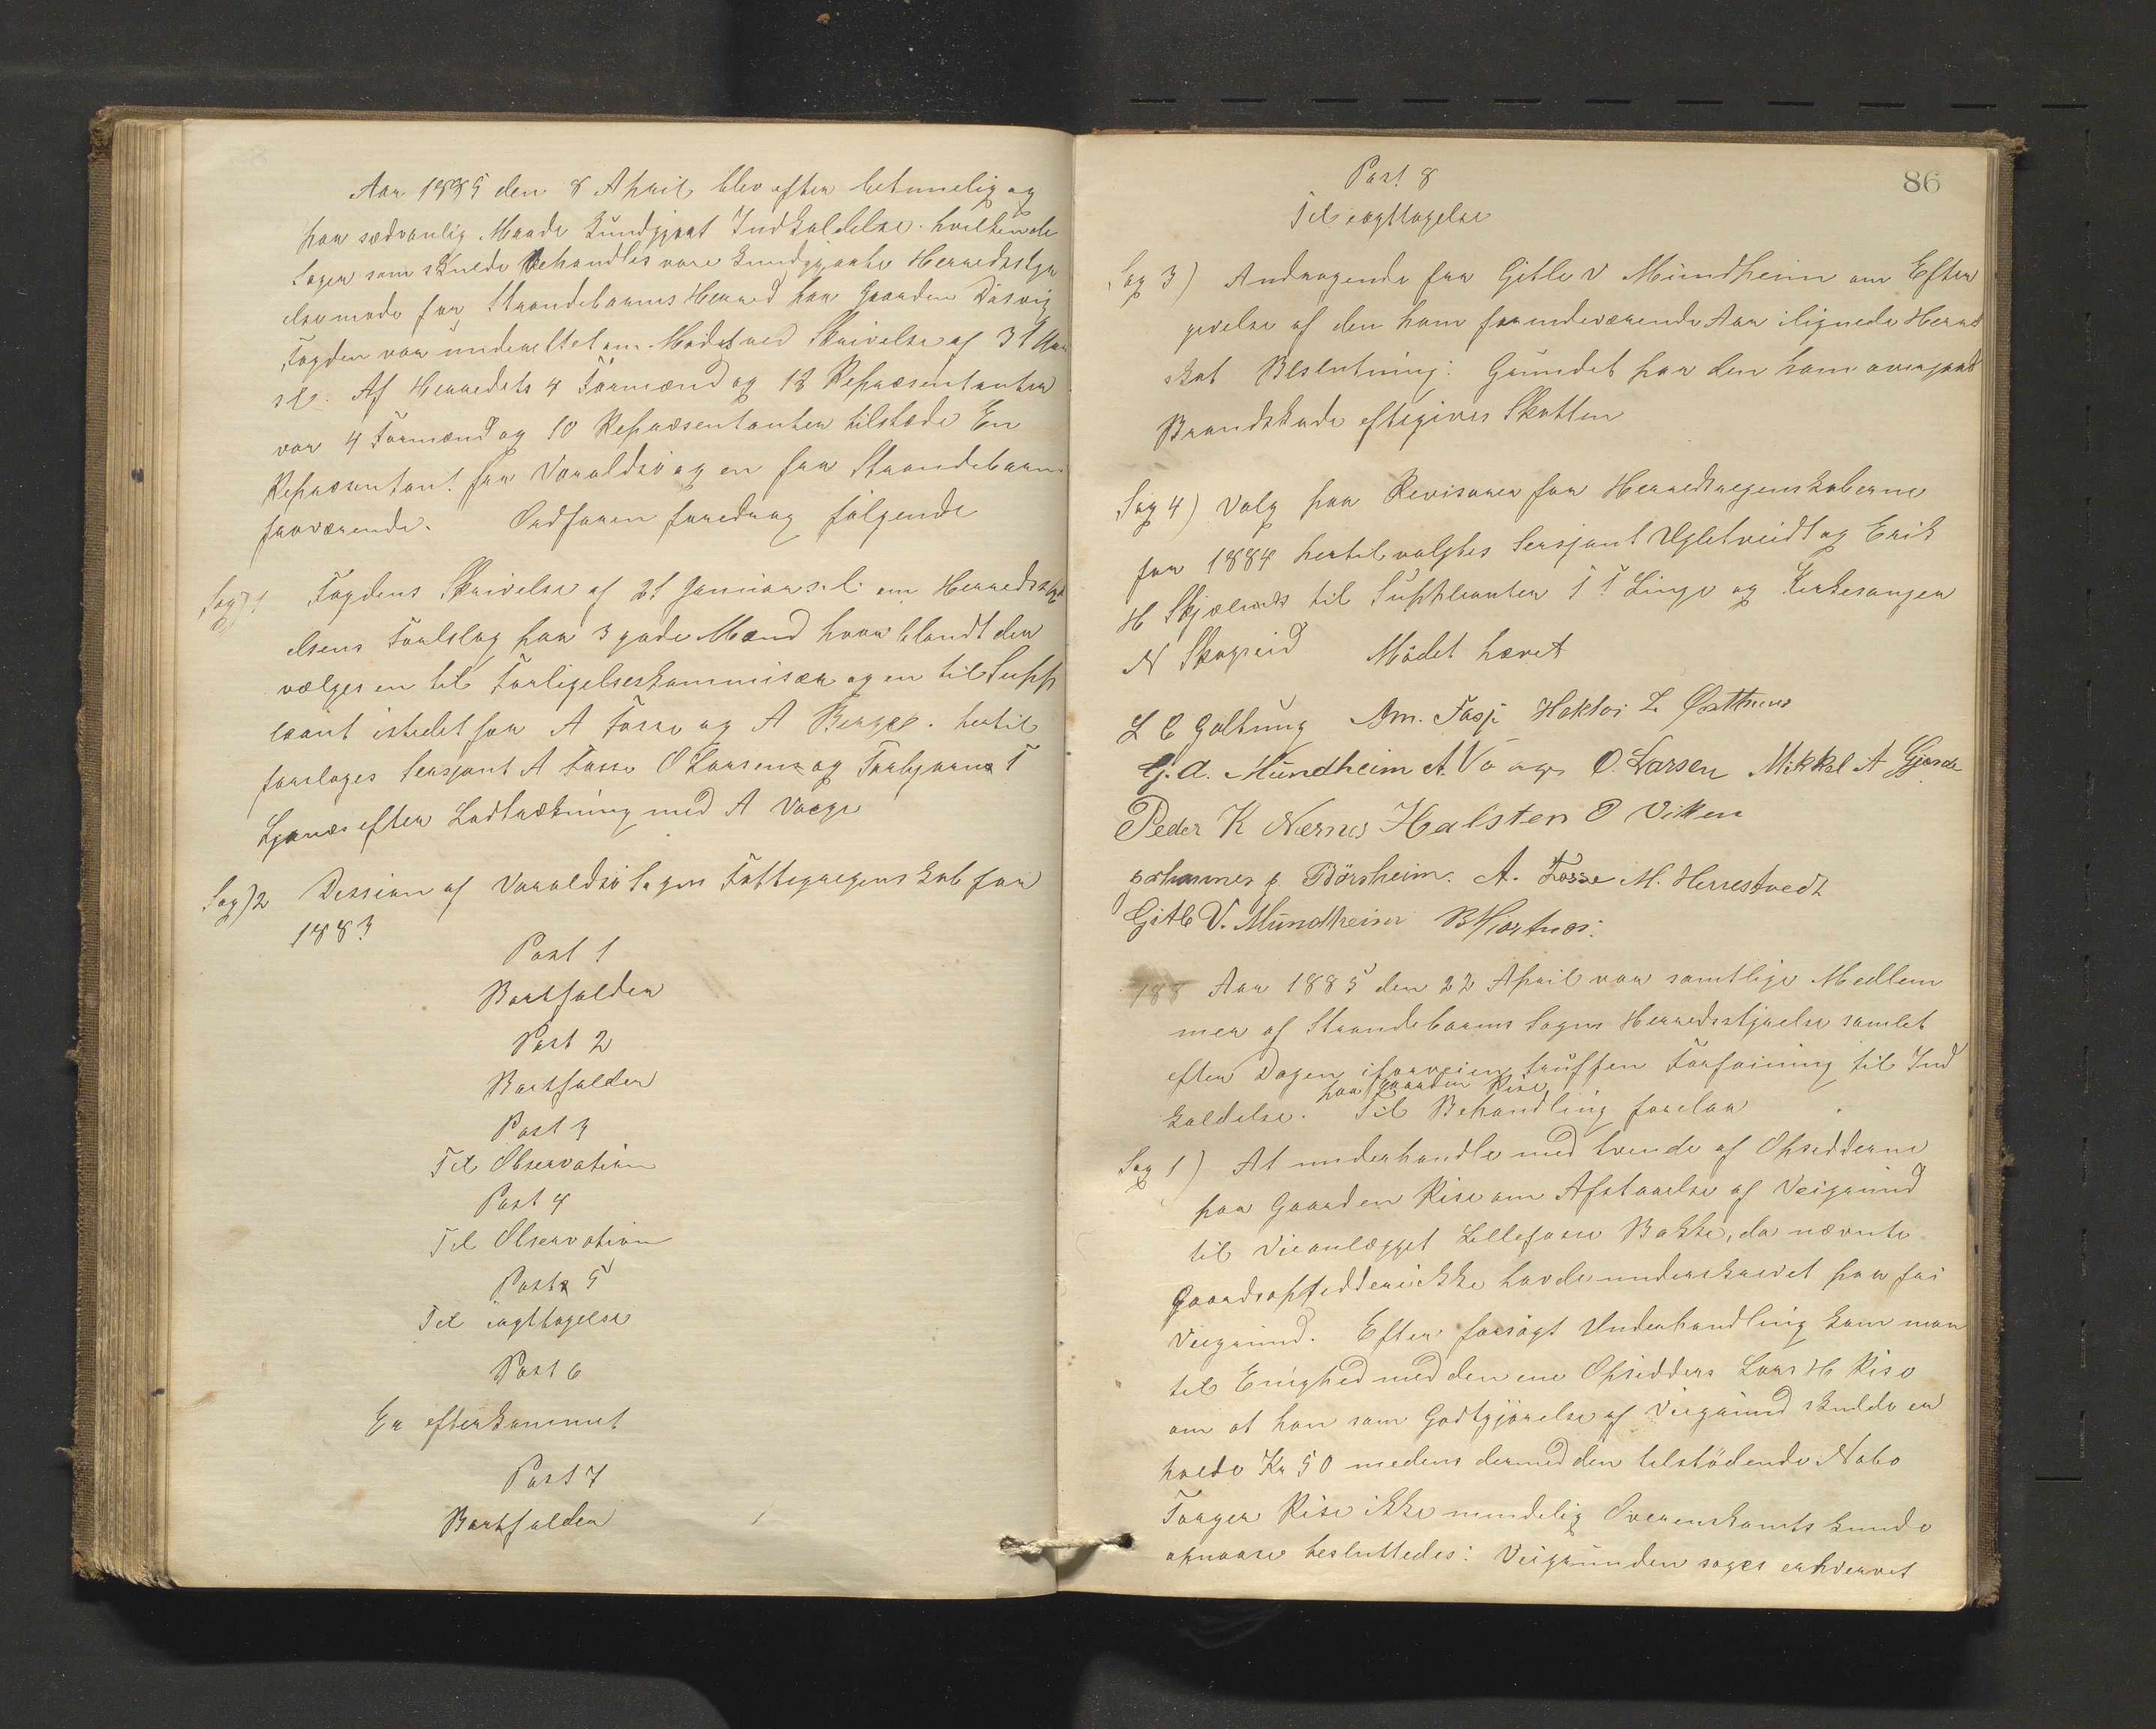 Aar 1885 den 8 April blev efter betimelig og
paa sædvanlig Maade kundgjort Indkaldelse hvilkende
Sager som skulde behandles vare kundgjorte Herredssty
elsemøde for Strandebarms Herred paa Gaarden Dåsvig
Fogden var underrettet om Mødet ved Skrivelse af 31 Mar
s.l. Af Herredets 4 Formænd og 12 Repræsentanter
var 4 Formænd og 10 Repræsentanter tilstæde En
Repræsentant fra Varaldsö og en fra Strandebarm
fraværende. Ordføren foredrog følgende
Sag) 1 Fogdens Skrivelse af 21 Januar s.l. om Herredssty
elsens Forslag paa 3 gode Mænd hvor blandt den
vælges en til Forligelseskommisær og en til Supp
leant istedet for A Fosse og A Berge. hertil
forsloges Sersjant A Fosse O Larsen og Torbjørn T
Ljønes efter Lodtrækning med A Vaage
Sag) 2 Desision af Varaldsö Sogns Fattigregnskab for
1883
Post 1
Bortfalder
Post 2
Bortfalder
Post 3
Til Observation
Post 4
Til Observation
Post 5
Til iagttagelse
Post 6
Er efterkommet
Post 7
Bortfalder
86
Post 8
Til iagttagelse
Sag 3) Andragende fra Gitle V Mundheim om Efter
givelse af den ham foreendeværende Aar ilignede Herreds
skat Beslutning: Grundet paa den ham overgaaet
Brandskade eftegives Skatten
Sag 4) Valg paa Revisorer for Herredsregnskaberne
for 1884 hertil valgtes Sersjant Ugletveidt og Erik
H Skjælnes til Supleanter T T Linge og Kirkesanger
N Skogseid Mödet hævet
L C Galtung Am. Fosse Haktor L Østhuus
G. A. Mundheim A. Vaage O. Larsen Mikkel A Gjerde
Peder K Nernes Halsten O Viken
Johannes J. Börsheim. A. Fosse M. Herrestvedt
Gitle V. Mundheim B Hjortnæs.
188 Aar 1885 den 22 April var samtlige Medlem
mer af Strandebarms Sogns Herredsstyrelse samlet
efter Dagen iforveien truffen Forføining til Ind
paa Gaarden Rise
kaldelse. Til Behandling forelaa
Sag 1) At underhandle med tvende af Opsidderne
paa Gaarden Rise om Afstaaelse af Veigrund
til Veianlægget Lillefosse Bakke, da nævnte
Gaardsopsiddere ikke havde underskrevet paa fri
Veigrund. Efter forsøgt Underhandling kom man
til Enighed med den ene Opsidders Lars H Rise
om at han som Godtgjørelse af Veigrund skulde er
holde Kr 50 medens dermed den tilstödende Nabo
Torger Rise ikke mindelig Overenskomts kunde
opnaaes besluttedes: Veigrunden søges erhvervet